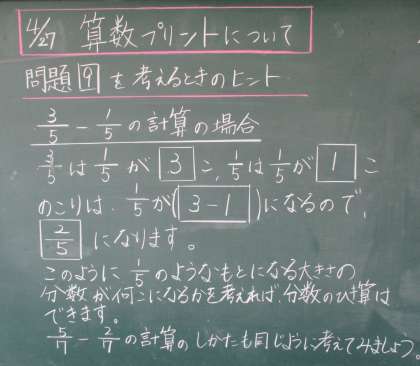 4/27 算数プリントについて
問題9を考えるときのヒント
3/5 - 1/5 の計算の場合
3/5 は 1/5 が 3 こ, 1/5 は 1/5 が 1 こ
のこりは, 1/5 が( 3-1 )になるので,
2/5 になります。
このように 1/5 のようなもとになる大きさの
分数が何こになるかを考えれば,分数のひき算は
できます。
5/7 - 2/7 の計算のしかたも同じように考えてみましょう。